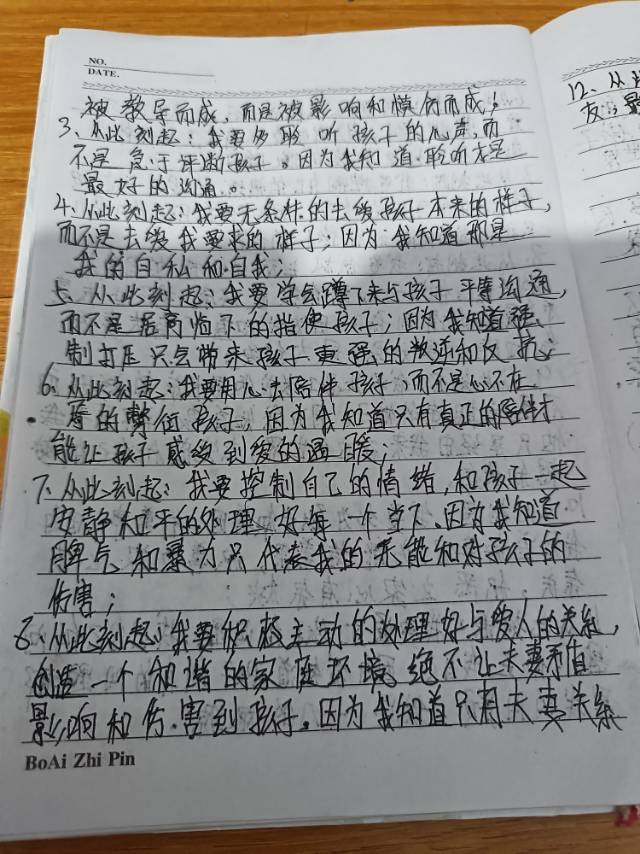 NO.
DATE.
被教导而成，而是被影响和模仿而成！
3、从此刻起：我要多聆听孩子的心声，而
不是急于评断孩子。因为我知道聆听才是
最好的沟通。
4、从此刻起：我要无条件的去爱孩子本来的样子，
而不是去爱我要求的样子；因为我知道那是
我的自私和自我；
5、从此刻起：我要学会蹲下来与孩子平等沟通，
而不是居高临下的指使孩子；因为我知道强
制打压只会带来孩子更强的叛逆和反抗；
6、从此刻起：我要用心去陪伴孩子，而不是心不在
焉的敷衍孩子，因为我知道只有真正的陪伴才
能让孩子感受到爱的温暖；
7、从此刻起：我要控制自己的情绪，和孩子一起
安静和平的处理好每一个当下。因为我知道
脾气和暴力只代表我的无能和对孩子的
伤害；
8、从此刻起：我要积极主动的处理好与爱人的关系，
创造一个和谐的家庭环境，绝不让夫妻矛盾
影响和伤害到孩子。因为我知道只有夫妻关系
BoAi Zhi Pin
12、从此
友，